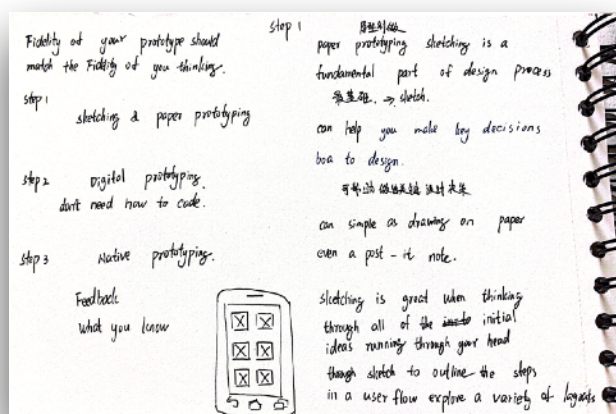 Fidelity of your prototype should
match the Fidlity of you thinking.
step 1
sketching & paper prototyping
step 2 Digital prototyping.
don't need how to code.
step 3 Native prototyping.
Feedback
what you know
step 1
paper prototyping sketching is a
fundamental part of design process
最基础. → sketch.
can help you make key decisions
to design.
可帮助 做 设计决策
can simple as drawing on paper
even a post-it note.
sketching is great when thinking
through all of initial
ideas running through your head
though sketch to outline the steps
in a user flow explore a variety of layouts